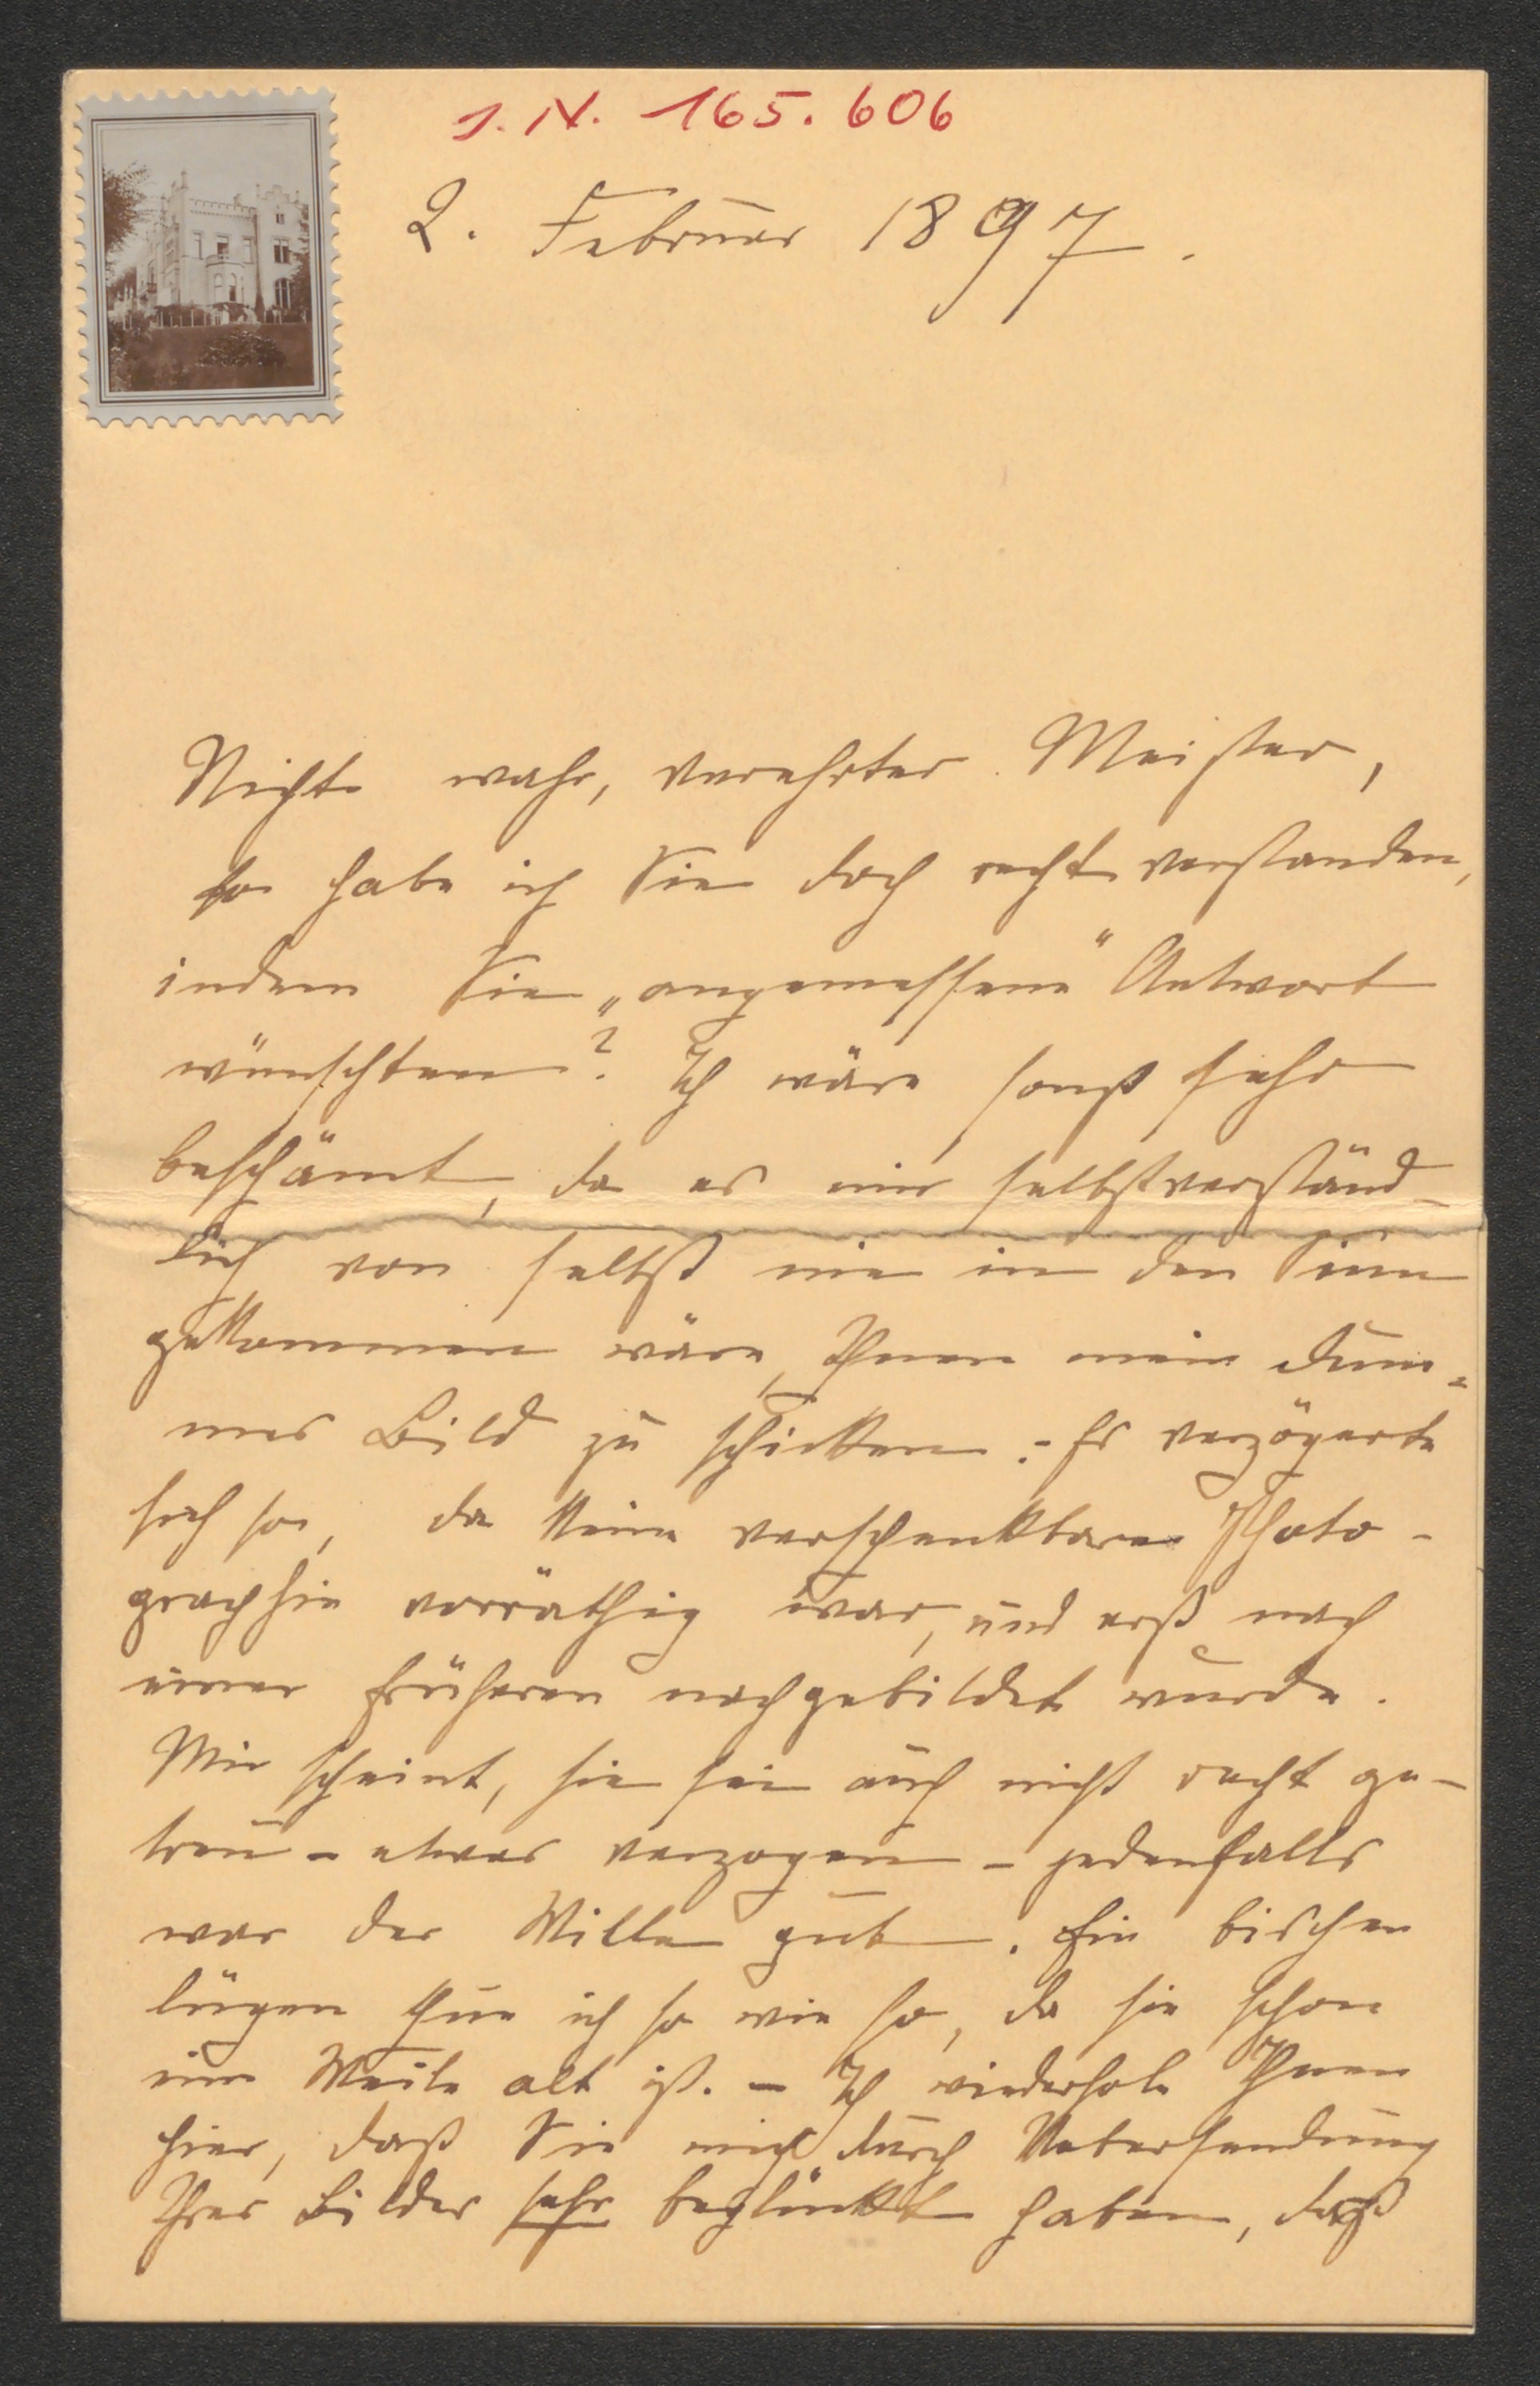 J. N. 165.606
2. Februar 1897.
Nicht wahr, verehrter Meister,
so habe ich Sie doch recht verstanden,
indem Sie „angemessene“ Antwort
wünschten? Ich wäre sonst sehr
beschämt, da es mir selbstverständ-
lich von selbst nie in den Sinn
gekommen wäre, Ihnen mein dum-
mes Bild zu schicken. - Es verzögerte
sich so, da keine verschenkbare Photo-
graphie vorräthig war, und erst nach
einer früheren nachgebildet wurde.
Mir scheint, sie sei auch nicht recht ge-
treu - etwas verzogen - jedenfalls
war der Wille gut. Ein bischen
lügen thue ich so wie so, da sie schon
eine Weile alt ist. - Ich wiederhole Ihnen
hier, daß Sie mich durch Uebersendung
Ihres Bildes sehr beglückt haben, daß